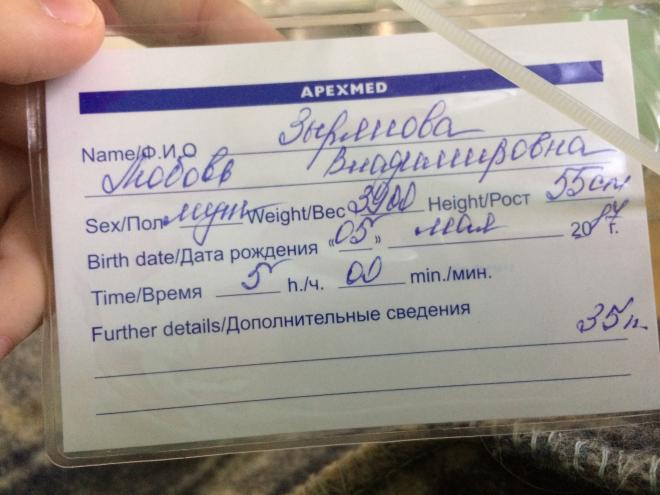 APEXMED
Name/Ф.И.О Зырянова
Любовь Владимировна
Sex/Пол муж Weight/Вес 3900 Height/Рост 55 см
Birth date/Дата рождения «05» мая 2084 г.
Time/Время 5 h./ч. 00 min./мин.
Further details/Дополнительные сведения
35 п